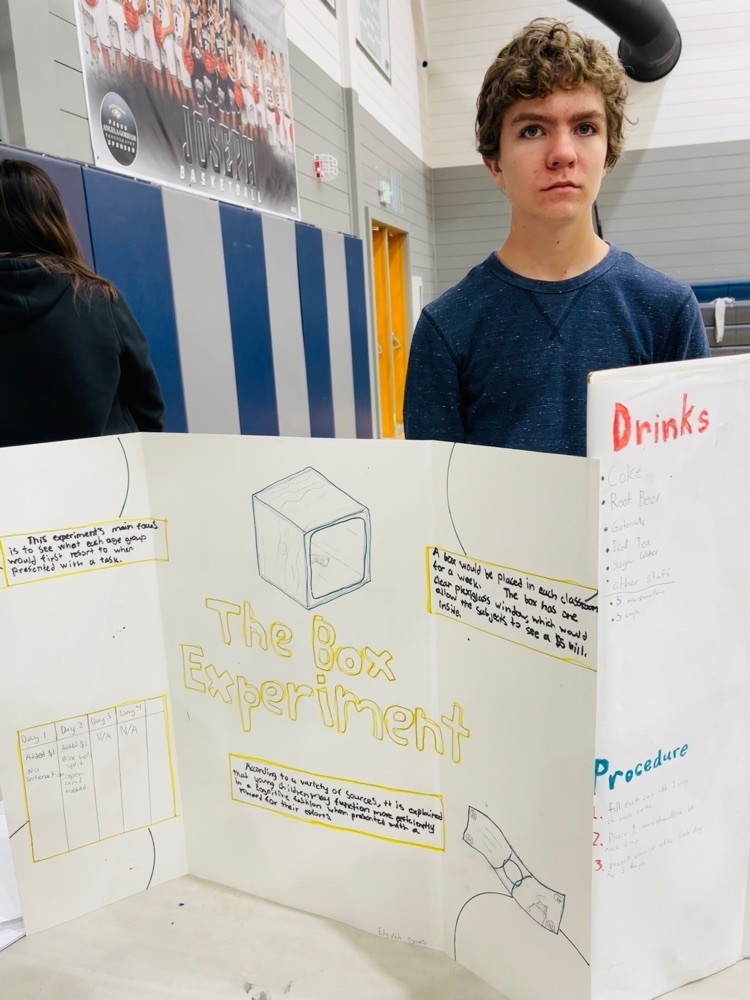 ANGELA GORHAM
JOSEPH
BASKETBALL
This experiment's main focus
is to see what each age group
would first resort to when
presented with a task.
The Box
Experiment
A box would be placed in each classroom
for a week. The box has one
clear plexiglass window, which would
allow the subjects to see a $5 bill
inside.
Day 1 Day 2 Day 3 Day 4
Added $1 Added $1 N/A N/A
No Box
split
open
and
According to a variety of sources, it is explained
that young children may function more efficiently
in a cognitive fashion when presented with a
reward for their efforts.
Drinks
• Coke
• Root Beer
• Gatorade
• Iced Tea
• Sugar Water
• other stuff
• 5
• 5 cups
Procedure
1.
2. Place 1
3.